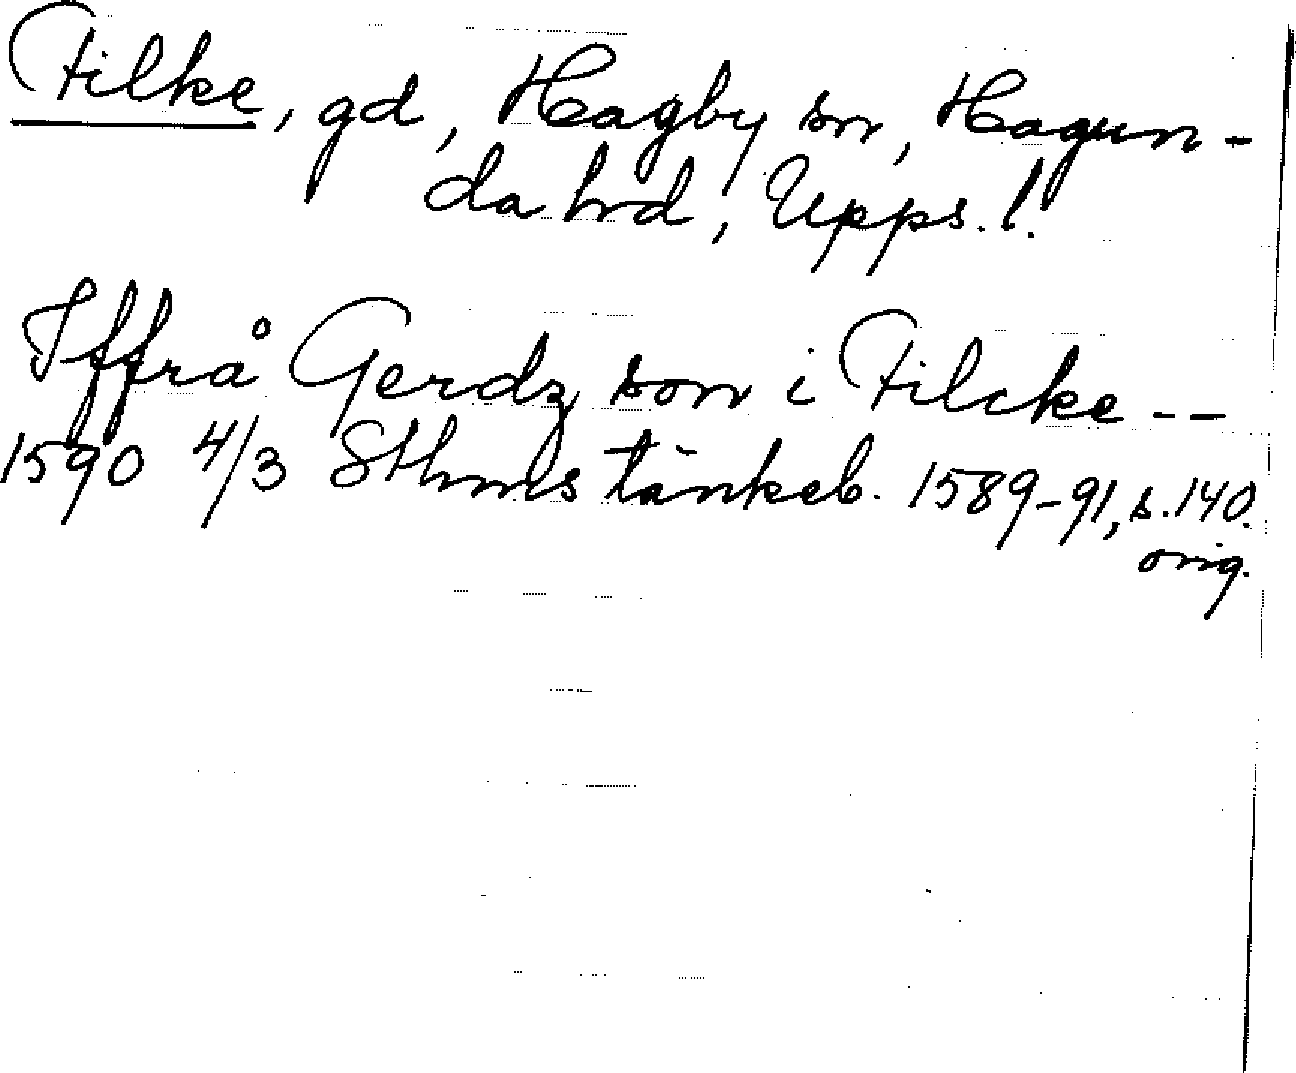 Filke, gd, Hagby sn, Hagun-
da hrd, Upps. l.
Iffrå Gerdz son i Filcke --
1590 4/3 Sthms tänkeb. 1589-91, s. 140.
orig.